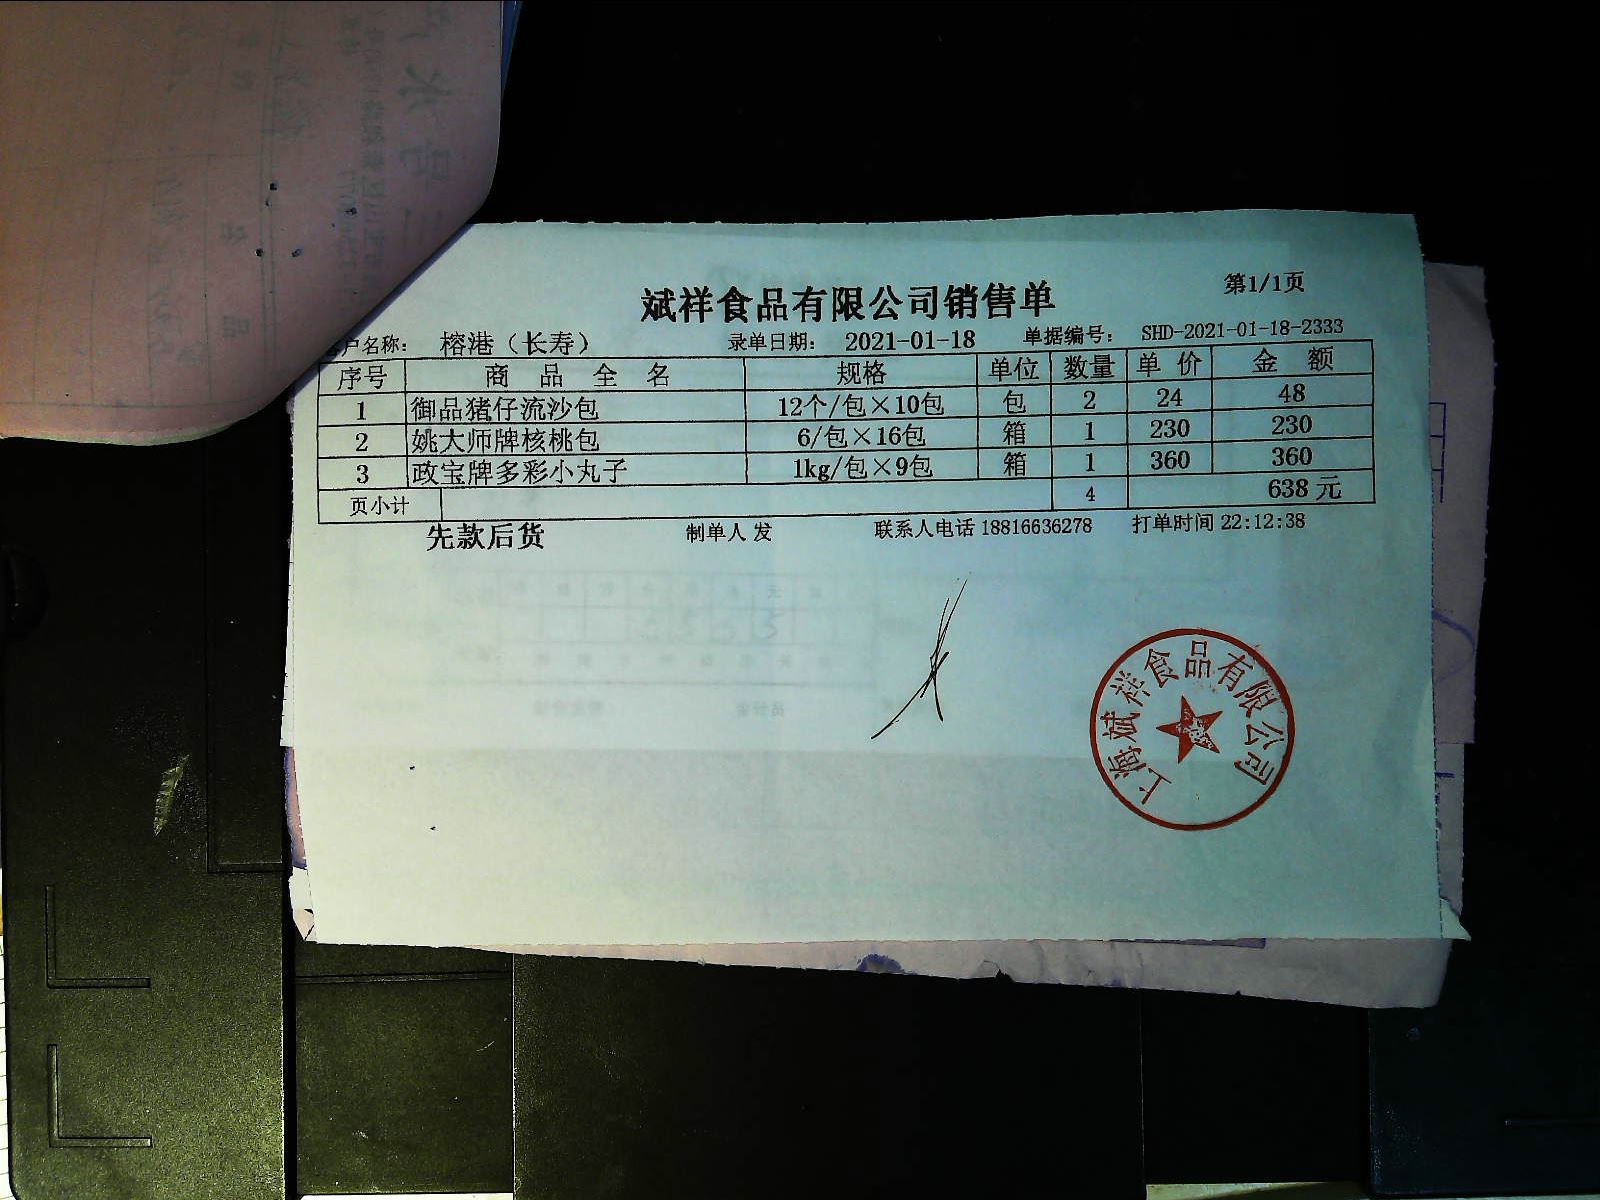 斌祥食品有限公司销售单
第1/1页
户名称： 榕港（长寿） 录单日期： 2021-01-18 单据编号： SHD-2021-01-18-2333
序号 商品全名 规格 单位 数量 单价 金额
1 御品猪仔流沙包 12个/包×10包 包 2 24 48
2 姚大师牌核桃包 6/包×16包 箱 1 230 230
3 政宝牌多彩小丸子 1kg/包×9包 箱 1 360 360
页小计 4 638元
先款后货 制单人 发 联系人电话 18816636278 打单时间 22:12:38
上海斌祥食品有限公司